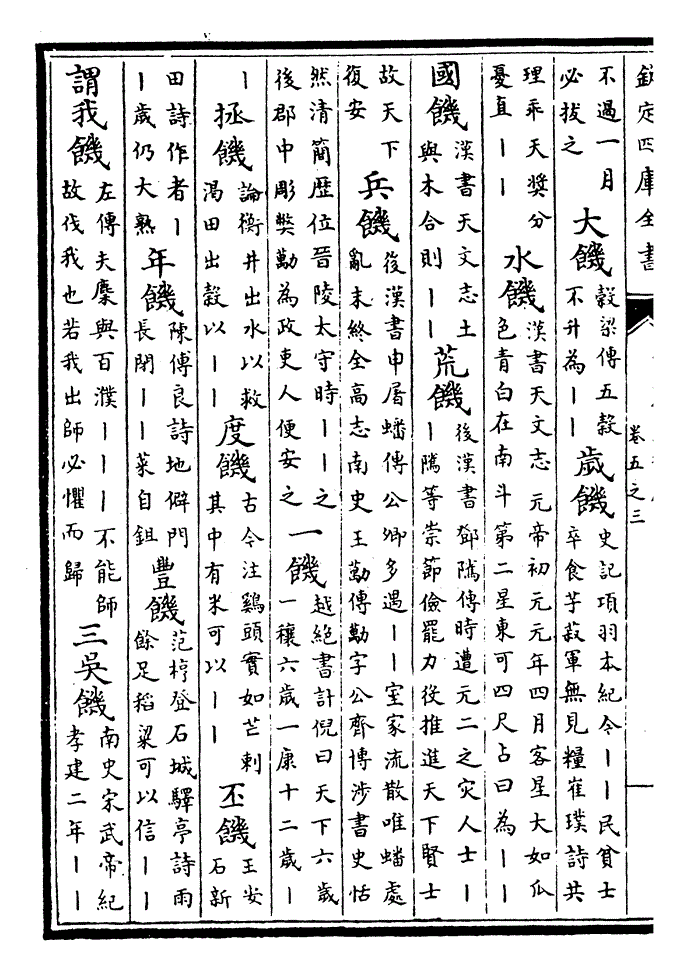 欽定四庫全書
卷五之三
不過一月必拔之 大饑 榖梁傳五穀不升為｜｜ 歲饑 史記項羽本紀今｜｜民貧士卒食芋菽軍無見糧崔璞詩共
理乖天奬分憂直｜｜ 水饑 漢書天文志元帝初元元年四月客星大如瓜色青白在南斗第二星東可四尺占曰為｜｜
國饑 漢書天文志土與木合則｜｜ 荒饑 後漢書鄧隲傳時遭元二之灾人士｜｜隲等崇節儉罷力役推進天下賢士
故天下復安 兵饑 後漢書申屠蟠傳公卿多遇｜｜室家流散唯蟠處亂末終全高志南史王勤傳勤字公齊博涉書史恬
然清簡歴位晉陵太守時｜｜之後郡中彫獘勤為政吏人便安之 一饑 越絕書計倪曰天下六歲一穰六歲一康十二歲｜
｜ 拯饑 論衡井出水以救渴田出穀以｜｜ 度饑 古今注鷄頭實如芒刺其中有米可以｜｜ 丕饑 王安石新
田詩作者｜｜歲仍大熟 年饑 陳傅良詩地僻門長閉｜｜菜自鉏 豐饑 范梈登石城驛亭詩雨餘足稻粱可以信｜｜
謂我饑 左傳夫麇與百濮｜｜｜不能師故伐我也若我出師必懼而歸 三吳饑 南史宋武帝紀孝建二年｜｜